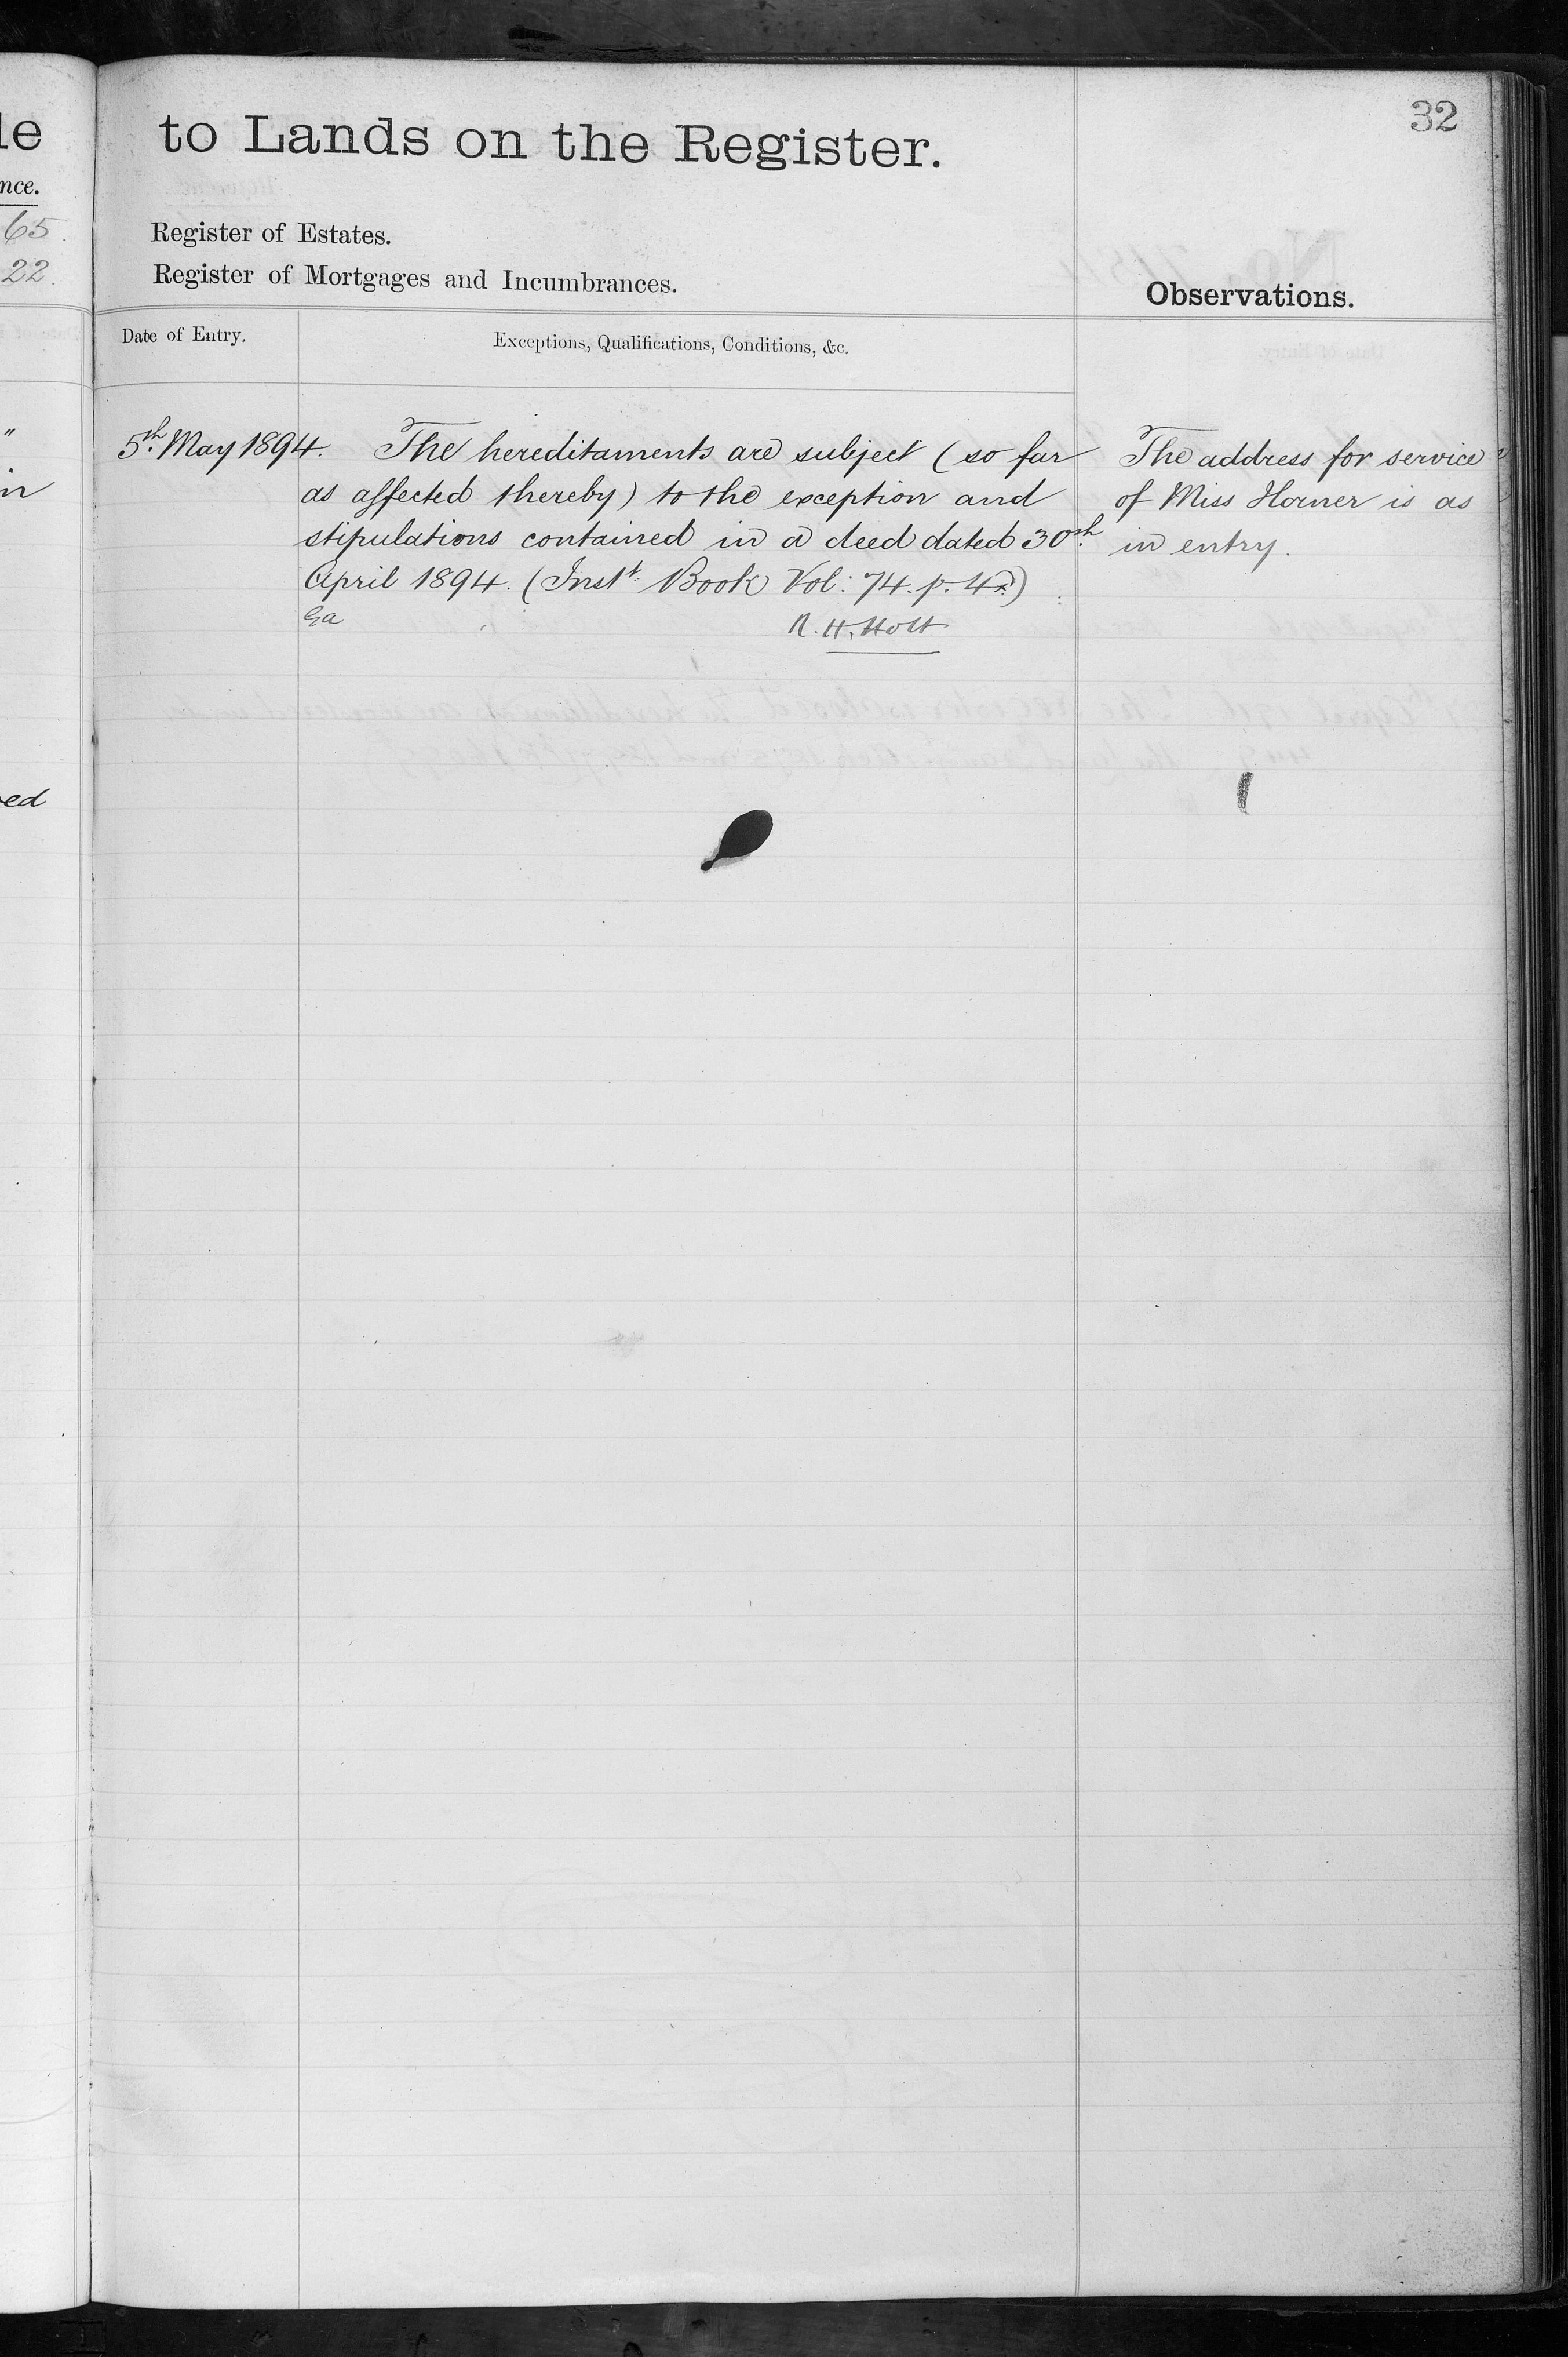 32
to Lands on the Register.
Register of Estates.
Register of Mortgages and Incumbrances.
Observations.
Date of Entry.
Exceptions, Qualifications, Conditions, &c.
nce.
65.
22.
5th. May 1894.
The hereditaments are subject (so far
as affected thereby) to the exception and
stipulations contained in a deed dated 30th.
April 1894. (Inst. Book Vol: 74. p.
R. H. Holt
The address for service
of Miss Horner is as
in entry.
ed